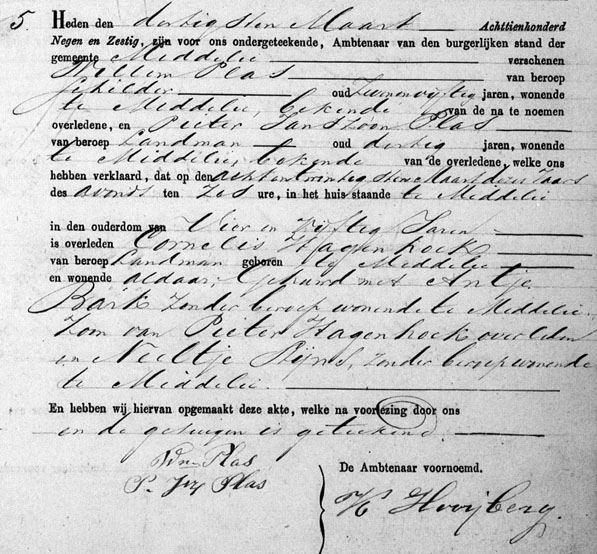 5. Heden den dertigsten Maart Achttienhonderd
Negen en Zestig, zijn voor ons ondergeteekende, Ambtenaar van den burgerlijken stand der
gemeente Middelie verschenen
Willem Plas van beroep
schilder oud jaren, wonende
te Middelie, bekende van de na te noemen
overledene, en Pieter Janszoon Plas
van beroep Landman oud dertig jaren, wonende
te Middelie, bekende van de overledene, welke ons
hebben verklaard, dat op den achtentwintigsten Maart dezes Jaars
des avonds ten Zes ure, in het huis staande te Middelie
in den ouderdom van Vier en Vijftig Jaren
is overleden Cornelis Hagenhoek
van beroep Landman geboren te Middelie
en wonende aldaar, Gehuwd met Antje
Bark zonder beroep wonende te Middelie
Zoon van Pieter Hagenhoek overleden
en Neeltje zonder beroep wonende
te Middelie.
En hebben wij hiervan opgemaakt deze akte, welke na voorlezing door ons
en de getuigen is geteekend.
Wm Plas
P. Jz Plas
De Ambtenaar voornoemd.
K Hooijberg.